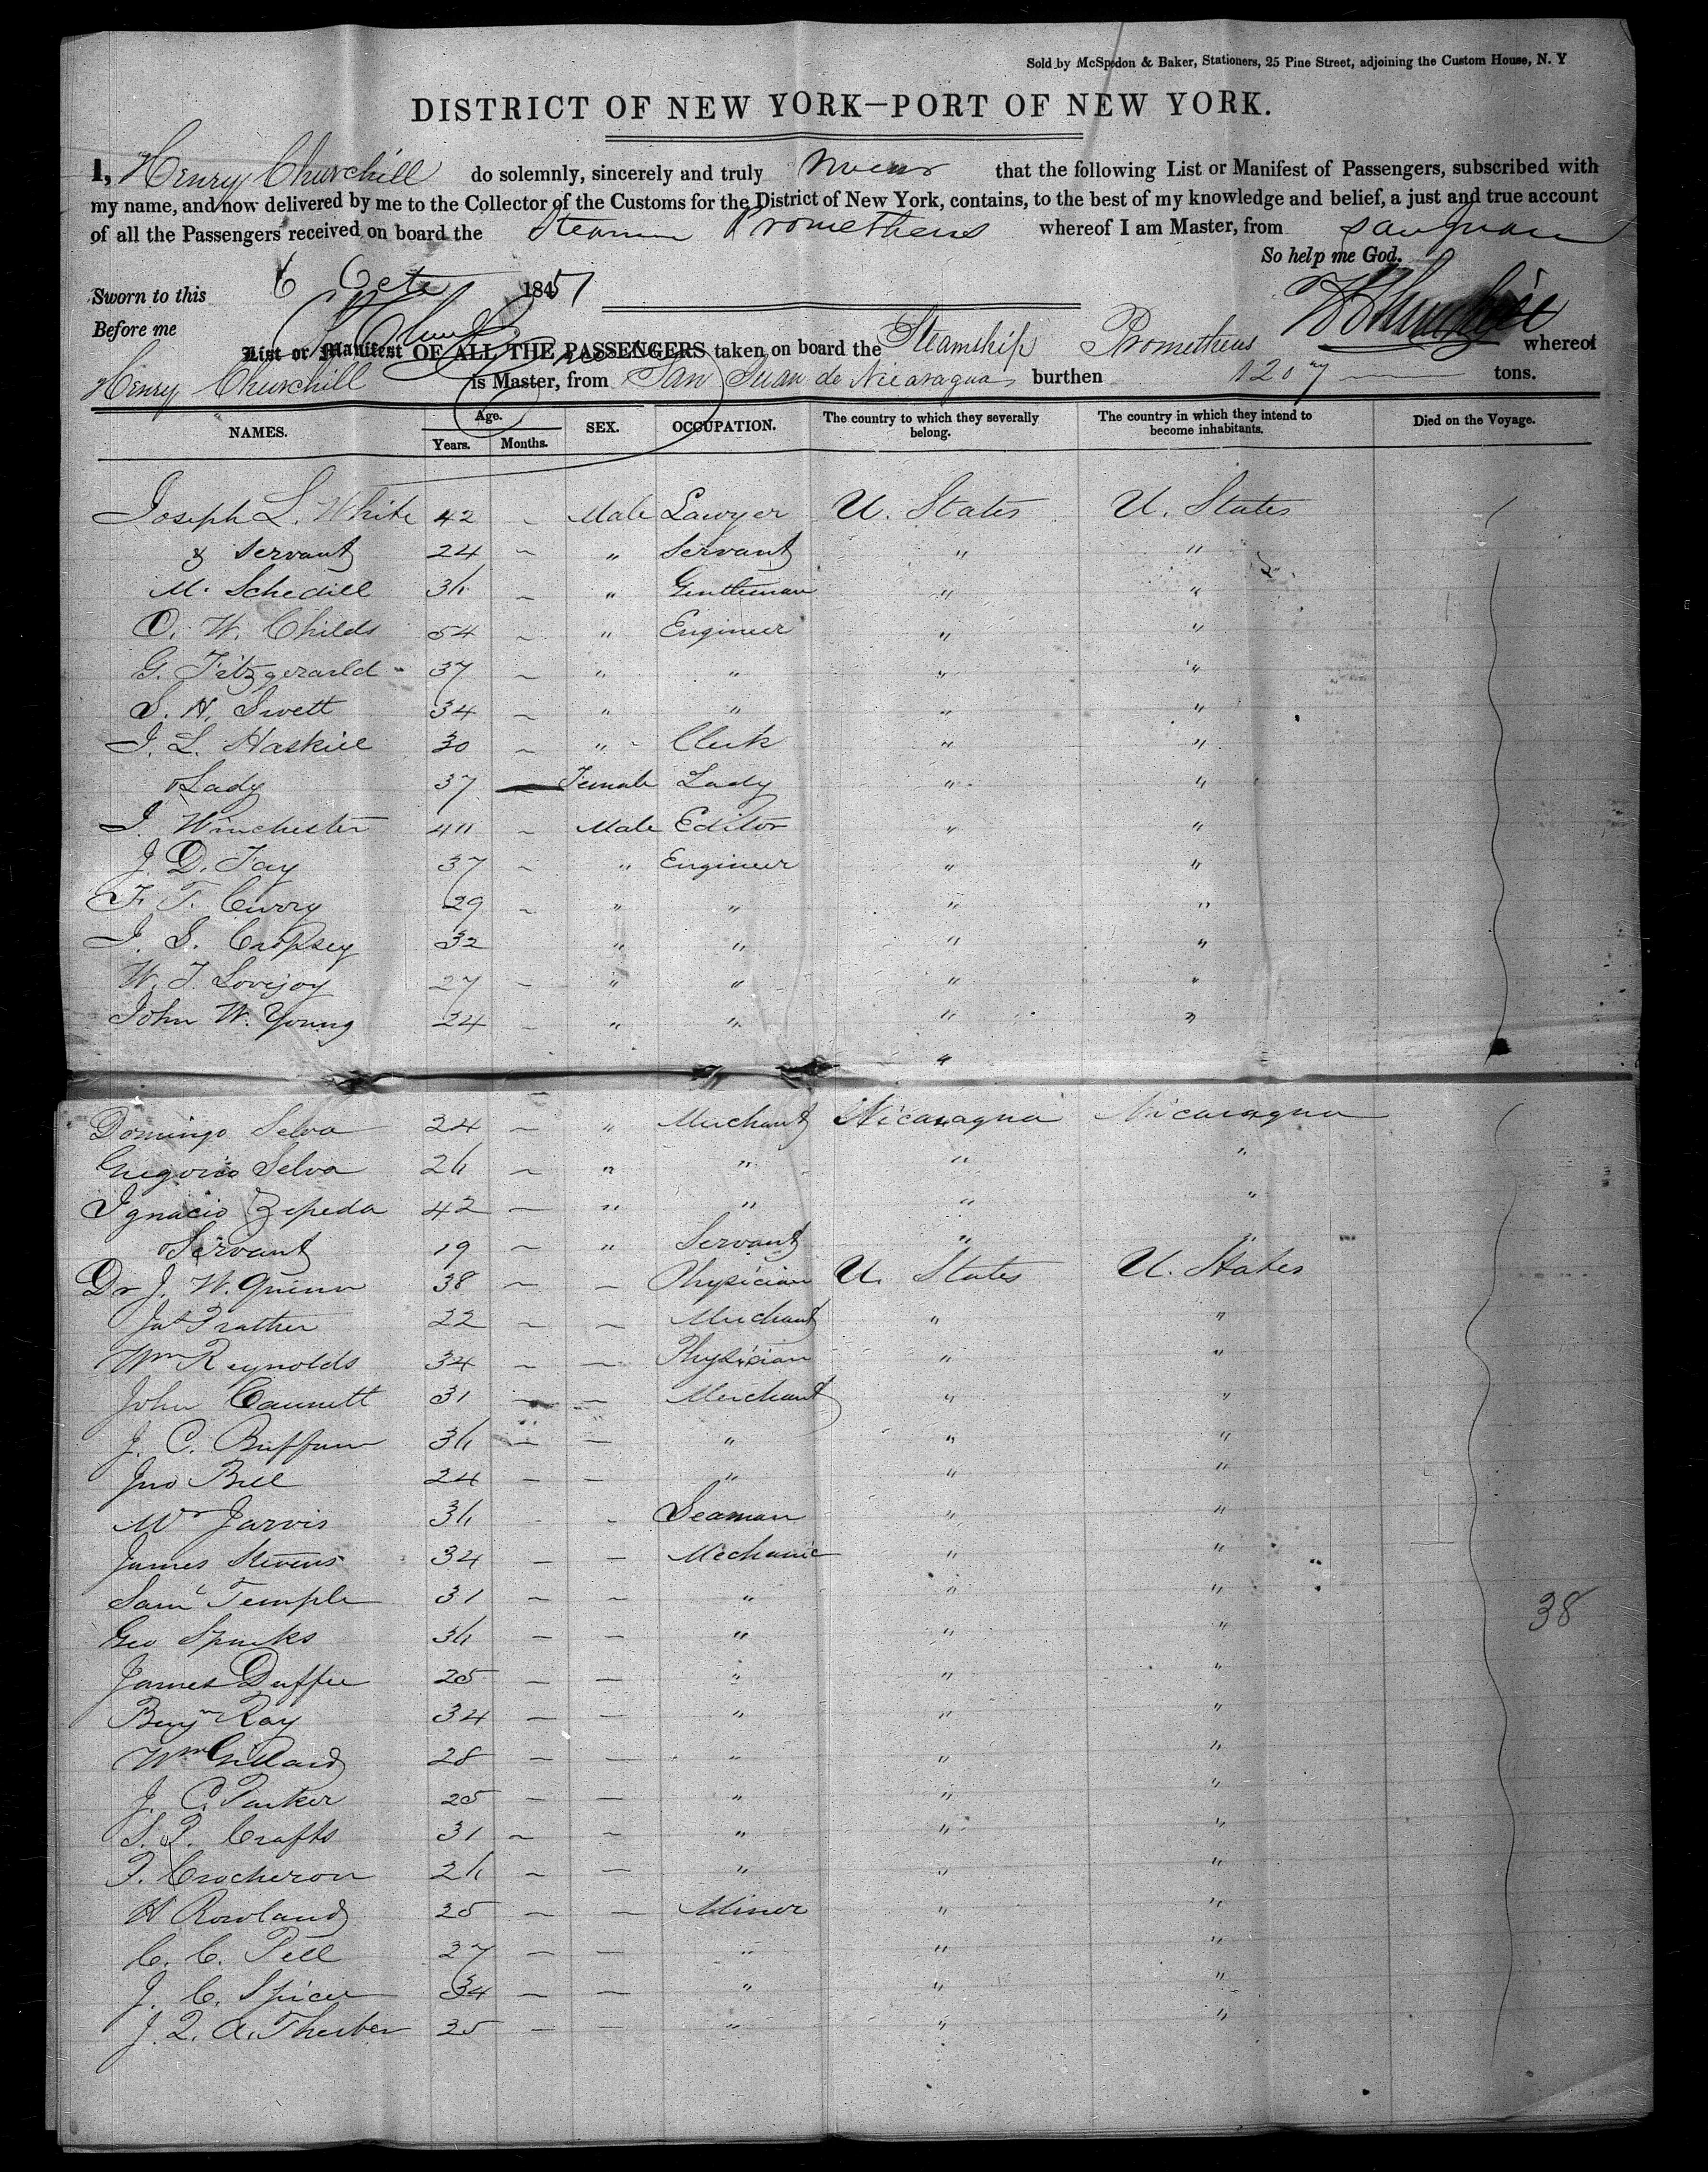 Sold by McSpedon & Baker, Stationers, 25 Pine Street, adjoining the Custom House, N. Y
DISTRICT OF NEW YORK—PORT OF NEW YORK.
I, Henry Churchill do solemnly, sincerely and truly swear that the following List or Manifest of Passengers, subscribed with
my name, and now delivered by me to the Collector of the Customs for the District of New York, contains, to the best of my knowledge and belief, a just and true account
of all the Passengers received on board the Steamer Prometheus whereof I am Master, from San Juan
So help me God.
Sworn to this 6 Oct 1851
Before me H Churchill
List or Manifest OF ALL THE PASSENGERS taken on board the Steamship Prometheus whereof
Henry Churchill is Master, from San Juan de Nicaragua burthen 1207 tons.
NAMES. Age. Years. Months. SEX. OCCUPATION. The country to which they severally belong. The country in which they intend to become inhabitants. Died on the Voyage.
Joseph L. White 42 – Male Lawyer U. States U. States
& Servant 24 – " Servant " "
M. Schedill 36 – " Gentleman " "
O. W. Childs 54 – " Engineer " "
G. Fitzgerarld 37 – " " " "
S. H. Swett 34 – " " " "
J. L. Haskill 30 – " Clerk " "
& Lady 37 – Female Lady " "
J. Winchester 40 – Male Editor " "
J. D. Fay 37 – " Engineer " "
F. T. Curry 29 – " " " "
J. S. Cropsey 32 " " " "
W. T. Lovejoy 27 – " " " "
John W. Young 24 – " " " "
"
Domingo Selva 24 – " Merchant Nicaragua Nicaragua
Gregorio Selva 26 – " " " "
Ignacio Zepeda 42 – " " " "
& Servant 19 – " Servant " "
Dr J. W. Quinn 38 – – Physician U. States U. States
Jas Prather 22 – – Merchant " "
Wm Reynolds 34 – – Physician " "
John Cannett 31 – – Merchant " "
J. C. Buffum 36 – – " " "
Jno Bell 24 – – " " "
Mr Jarvis 36 – – Seaman " "
James Stevens 34 – – Mechanic " "
Saml Temple 31 – – " " "
Geo Sparks 36 – – " " "
James Duffee 25 – – " " "
Benjn Ray 34 – – " " "
Wm Gillard 28 – – " " "
J. C. Parker 25 – – " " "
S. P. Crafts 31 – – " " "
P. Crocheron 26 – – " " "
H Rowland 25 – – Miner " "
C. C. Pell 27 – – " " "
J. C. Spicer 34 – – " " "
J. Q. A. Thurber 25 – – " " "
38